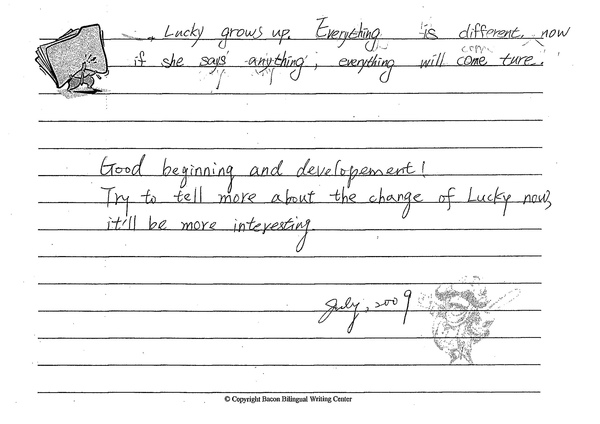 Lucky grows up. Everything is different now
if she says anything, everything will come ture.
Good beginning and developement!
Try to tell more about the change of Lucky now,
it'll be more interesting.
July, 2009
© Copyright Bacon Bilingual Writing Center